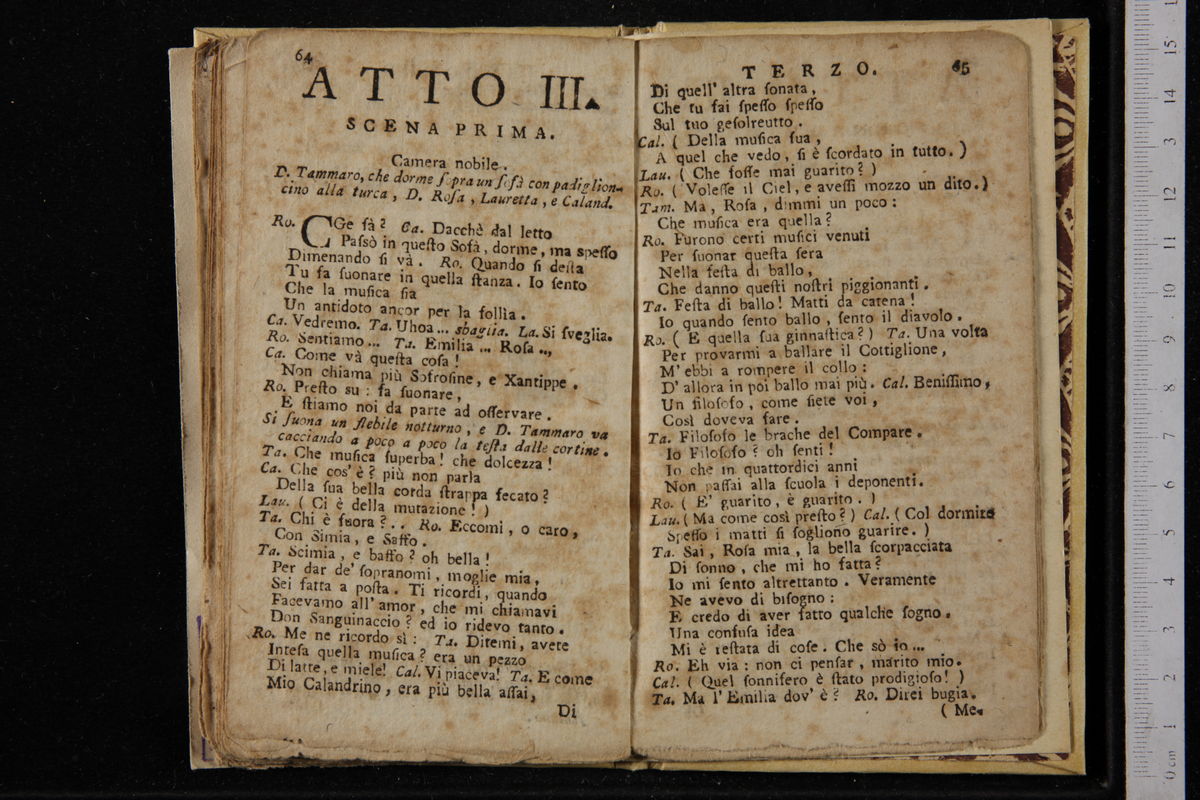 64
ATTO III.
SCENA PRIMA.
Camera nobile.
D. Tammaro, che dorme ſopra un ſofà con padiglion-
cino alla turca, D. Roſa, Lauretta, e Caland.
Ro. CGe fà? Ca. Dacchè dal letto
Paſsò in queſto Sofà, dorme, ma speſſo
Dimenando ſi và. Ro. Quando ſi deſta
Tu fa ſuonare in quella ſtanza. Io ſento
Che la muſica ſia
Un antidoto ancor per la follìa.
Ca. Vedremo. Ta. Uhoa... sbaglia. La. Si ſveglia.
Ro. Sentiamo... Ta. Emilia... Roſa...
Ca. Come và queſta coſa!
Non chiama più Sofroſine, e Xantippe.
Ro. Preſto su: fa ſuonare,
E ſtiamo noi da parte ad oſſervare.
Si ſuona un flebile notturno, e D. Tammaro va
cacciando a poco a poco la teſta dalle cortine.
Ta. Che muſica ſuperba! che dolcezza!
Ca. Che cos'è? più non parla
Della ſua bella corda ſtrappa fecato?
Lau. (Ci è della mutazione!)
Ta. Chi è fuora?.. Ro. Eccomi, o caro,
Con Simia, e Saffo.
Ta. Scimia, e baffo? oh bella!
Per dar de' ſopranomi, moglie mia,
Sei fatta a poſta. Ti ricordi, quando
Facevamo all'amor, che mi chiamavi
Don Sanguinaccio? ed io ridevo tanto.
Ro. Me ne ricordo sì: Ta. Ditemi, avete
Inteſa quella muſica? era un pezzo
Di latte, e miele! Cal. Vi piaceva! Ta. E come
Mio Calandrino, era più bella aſſai,
Di
TERZO. 65
Di quell' altra ſonata,
Che tu fai ſpeſſo ſpeſſo
Sul tuo geſolreutto.
Cal. (Della muſica ſua,
A quel che vedo, ſi è ſcordato in tutto.)
Lau. (Che foſſe mai guarito?)
Ro. (Voleſſe il Ciel, e aveſſi mozzo un dito.)
Tam. Ma, Roſa, dimmi un poco:
Che muſica era quella?
Ro. Furono certi muſici venuti
Per ſuonar queſta ſera
Nella feſta di ballo,
Che danno queſti noſtri piggionanti.
Ta. Feſta di ballo! Matti da catena!
Io quando ſento ballo, ſento il diavolo.
Ro. (E quella ſua ginnaſtica?) Ta. Una volta
Per provarmi a ballare il Cottiglione,
M' ebbi a rompere il collo:
D' allora in poi ballo mai più. Cal. Beniſſimo,
Un filoſofo, come ſiete voi,
Così doveva fare.
Ta. Filoſofo le brache del Compare.
Io Filoſofo? oh ſenti!
Io che in quattordici anni
Non paſſai alla ſcuola i deponenti.
Ro. (E' guarito, è guarito.)
Lau. (Ma come così preſto?) Cal. (Col dormire
Speſſo i matti ſi ſogliono guarire.)
Ta. Sai, Roſa mia, la bella ſcorpacciata
Di ſonno, che mi ho fatta?
Io mi ſento altrettanto. Veramente
Ne avevo di biſogno:
E credo di aver fatto qualche ſogno.
Una confuſa idea
Mi è reſtata di coſe. Che sò io...
Ro. Eh via: non ci penſar, marito mio.
Cal. (Quel ſonnifero è ſtato prodigioſo!)
Ta. Ma l'Emilia dov'è? Ro. Direi bugia.
(Me-